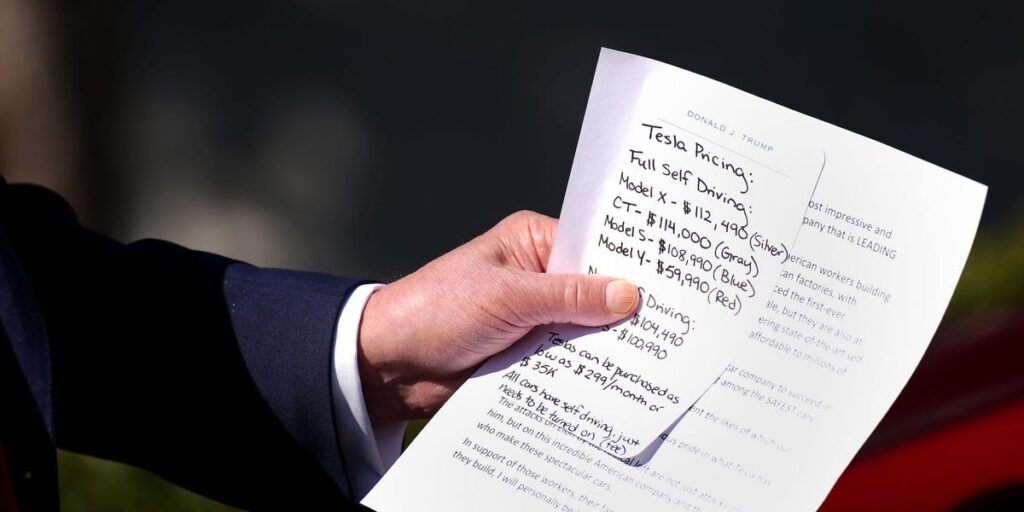 DONALD J. TRUMP
Tesla Pricing:
Full Self Driving:
Model X - $112,490 (Silver)
CT - $114,000 (Gray)
Model S - $108,990 (Blue)
Model Y - $59,990 (Red)
Driving:
$104,490
- $100,990
Teslas can be purchased as
low as $299/month or
$35K
All cars have self driving, just
needs to be turned on (fee)
ost impressive and
pany that is LEADING
merican workers building
an factories, with
ced the first-ever
ale, but they are also at
ering state-of-the-art self
affordable to millions of
ar company to succeed in
among the SAFEST cars
ent the likes of which our
s pride in what Tesla has
The attacks on left are not just attacks
him, but on this incredible American company and the
who make these spectacular cars.
In support of those workers, their fam
they build, I will personally b